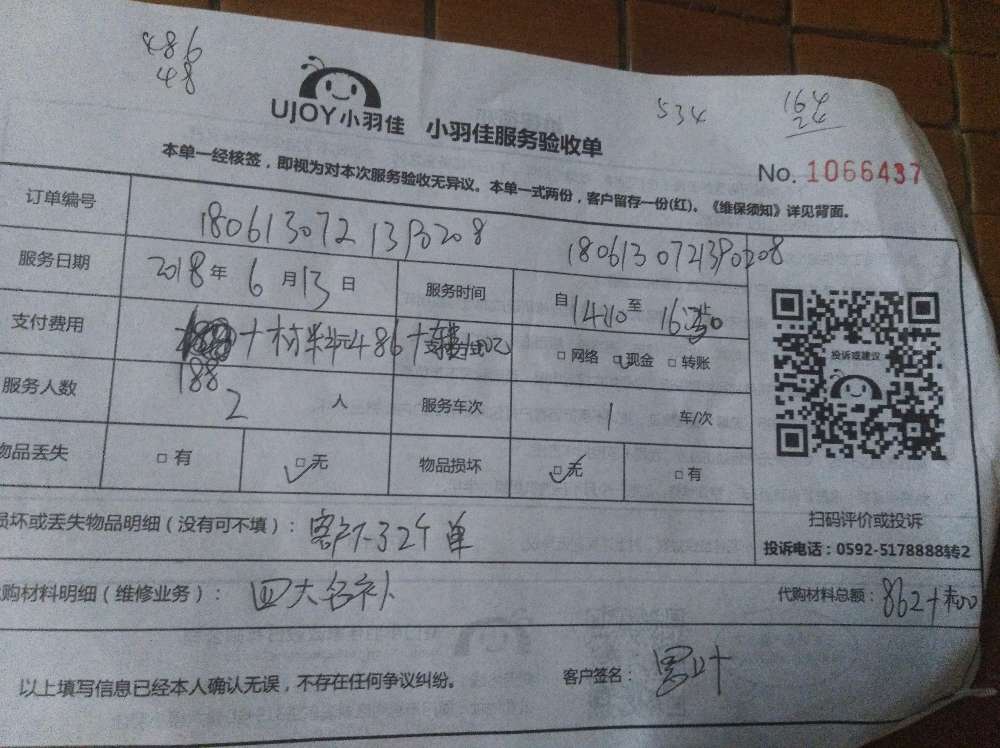 486
48
534
164
24
UJOY小羽佳 小羽佳服务验收单
No. 1066437
本单一经核签，即视为对本次服务验收无异议。本单一式两份，客户留存一份(红)。《维保须知》详见背面。
订单编号 1806130721390208 1806130721390208
服务日期 2018年6月13日 服务时间 自1410至
支付费用 +材料486+ □网络 □现金 □转账
188
服务人数 2人 服务车次 1车/次
物品丢失 □有 □无 物品损坏 □无 □有
投诉或建议
扫码评价或投诉
投诉电话：0592-5178888转2
损坏或丢失物品明细（没有可不填）：
代购材料明细（维修业务）：四大名补 代购材料总额：862+
以上填写信息已经本人确认无误，不存在任何争议纠纷。 客户签名：